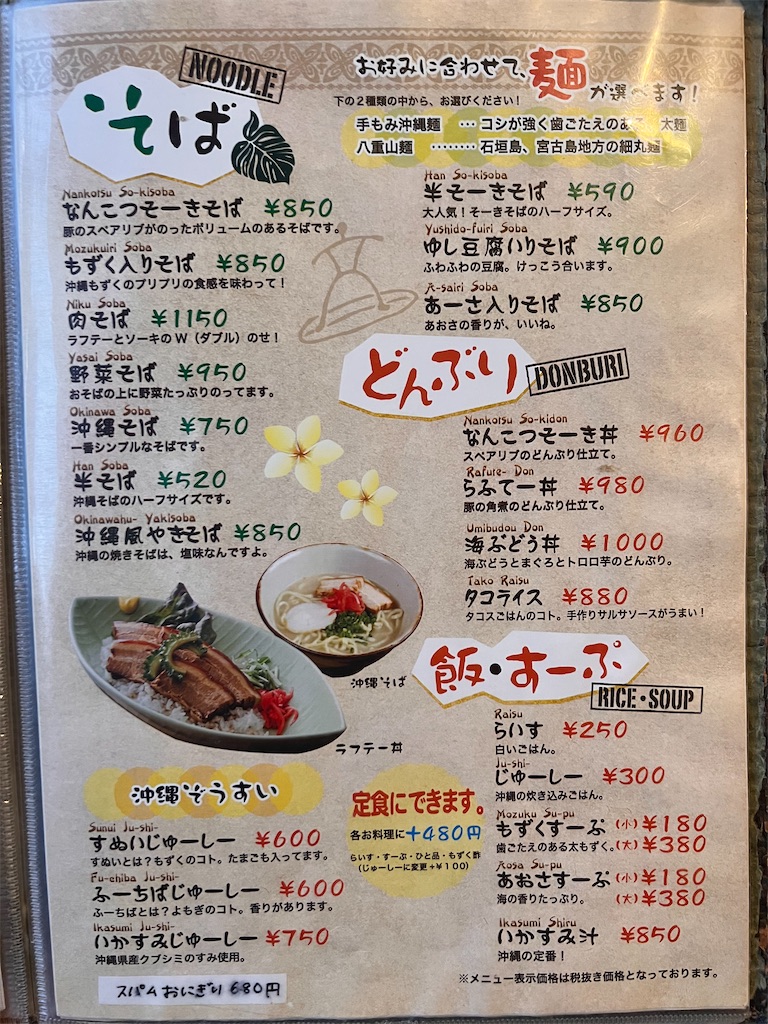 NOODLE
そば
お好みに合わせて、麺が選べます！
下の２種類の中から、お選びください！
手もみ沖縄麺 … コシが強く歯ごたえのある 太麺
八重山麺 ……… 石垣島、宮古島地方の細丸麺
Nankotsu So-kisoba
なんこつそーきそば ¥850
豚のスペアリブがのったボリュームのあるそばです。
Mozukuiri Soba
もずく入りそば ¥850
沖縄もずくのプリプリの食感を味わって！
Niku Soba
肉そば ¥1150
ラフテーとソーキのＷ（ダブル）のせ！
Yasai Soba
野菜そば ¥950
おそばの上に野菜たっぷりのってます。
Okinawa Soba
沖縄そば ¥750
一番シンプルなそばです。
Han Soba
半そば ¥520
沖縄そばのハーフサイズです。
Okinawahu- Yakisoba
沖縄風やきそば ¥850
沖縄の焼きそばは、塩味なんですよ。
Han So-kisoba
半そーきそば ¥590
大人気！そーきそばのハーフサイズ。
Yushido-fuiri Soba
ゆし豆腐いりそば ¥900
ふわふわの豆腐。けっこう合います。
A-sairi Soba
あーさ入りそば ¥850
あおさの香りが、いいね。
どんぶり
DONBURI
Nankotsu So-kidon
なんこつそーき丼 ¥960
スペアリブのどんぶり仕立て。
Rafute- Don
らふてー丼 ¥980
豚の角煮のどんぶり仕立て。
Umibudou Don
海ぶどう丼 ¥1000
海ぶどうとまぐろとトロロ芋のどんぶり。
Tako Raisu
タコライス ¥880
タコスごはんのコト。手作りサルサソースがうまい！
沖縄そば
ラフテー丼
飯・すーぷ
RICE・SOUP
Raisu
らいす ¥250
白いごはん。
Ju-shi-
じゅーしー ¥300
沖縄の炊き込みごはん。
Mozuku Su-pu
もずくすーぷ (小)¥180
歯ごたえのある太もずく。(大)¥380
Aosa Su-pu
あおさすーぷ (小)¥180
海の香りたっぷり。 (大)¥380
Ikasumi Shiru
いかすみ汁 ¥850
沖縄の定番！
沖縄ぞうすい
Sunui Ju-shi-
すぬいじゅーしー ¥600
すぬいとは？もずくのコト。たまごも入ってます。
Fu-chiba Ju-shi-
ふーちばじゅーしー ¥600
ふーちばとは？よもぎのコト。香りがあります。
Ikasumi Ju-shi-
いかすみじゅーしー ¥750
沖縄県産クブシミのすみ使用。
スパムおにぎり 680円
定食にできます。
各お料理に＋480円
らいす・すーぷ・ひと品・もずく酢
（じゅーしーに変更＋￥１００）
※メニュー表示価格は税抜き価格となっております。